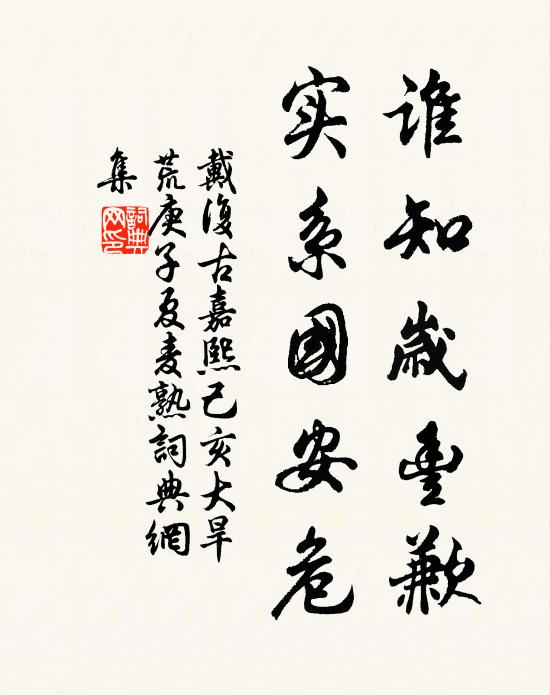 谁知歲豊歉
实系國安危
戴復古嘉熙己亥大旱
荒庚子夏麦熟詞典網
集
詞典網印